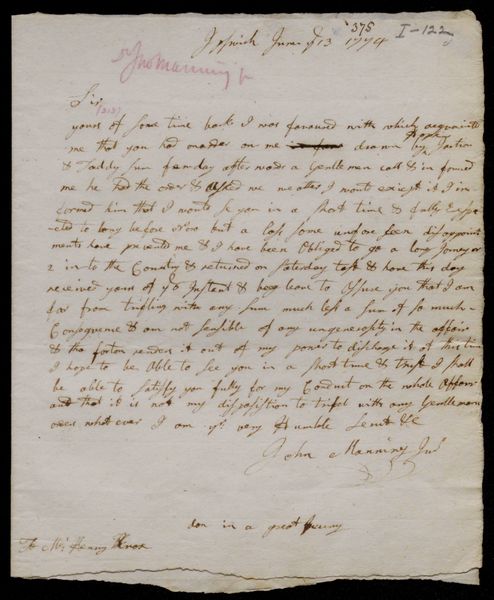 375 I-122
Ipswich June ye 13 1774
Jno Manning Jr
Sir
(213)
yours of some time back I was favoured with which acquaints
me that you had an order on me drawn by
& Taddy sum fenday after wards a Gentlemen call & in formed
me he had the order & asked me whether I wont except it I in
formed him that I wonts se you in a Short time & fully Expe
cted to long before now but a las some unfore seen dissapoint
ments have prevented me & I have been Obliged to go a long Jorney
in to the Country & returned on Saterday last & have this day
received yours of ye Instant & beg leave to assure you that I am
far from trifling with any Sum much less a Sum of so much
Consequence & am not sensible of any ungenerosity in the affair
& tho forton renders it out of my power to discharge it at this time
I hope to be Able to see you in a Short time & trust I shall
be able to satisfy you fully for my Conduct on the whole Affair
and that it is not my disposition to trifel with any Gentleman
I am yr very Humble Servt &c
John Manning Junr
don in a great hurry
To Mr Henry Knox